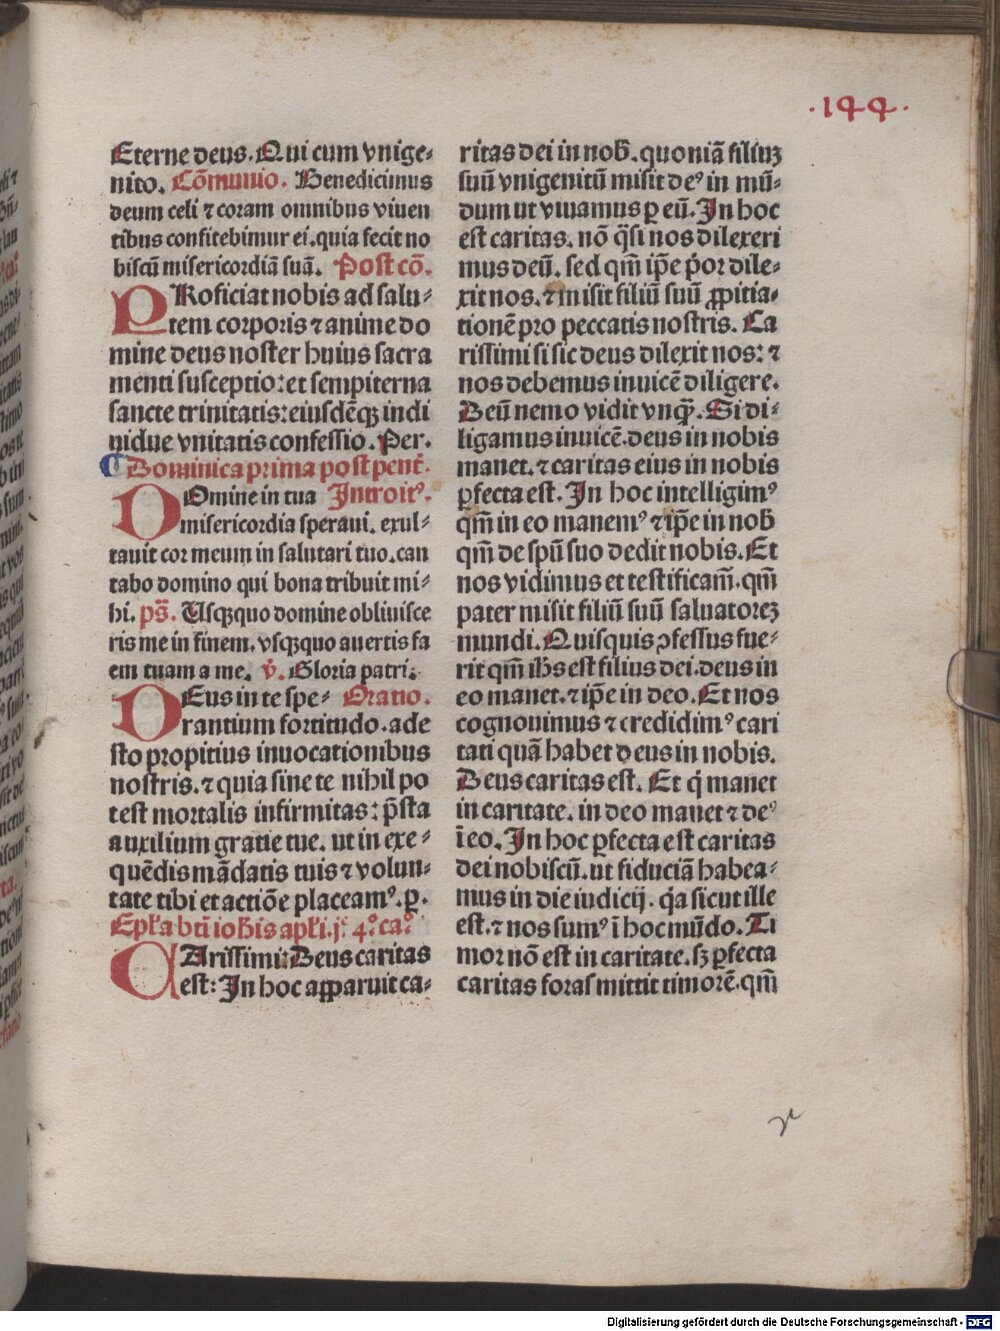 .144.
Eterne deus. Qui cum vnige⸗
nito. Cōmunio. Benedicimus
deum celi ⁊ coram omnibus viuen
tibus confitebimur ei. quia fecit no
biscū misericordiā suā. Post cō.
PRoficiat nobis ad salu⸗
tem corporis ⁊ anime do
mine deus noster huius sacra
menti susceptio: et sempiterna
sancte trinitatis: eiusdēqꝫ indi
uidue vnitatis confessio. Per.
Dominica prima post pent̄.
DOmine in tua Introitꝰ.
misericordia speraui. exul⸗
tauit cor meum in salutari tuo. can
tabo domino qui bona tribuit mi⸗
hi. ps̄. Usqꝫquo domine obliuisce
ris me in finem. vsqꝫquo auertis fa
em tuam a me. v̄. Gloria patri.
DEus in te spe⸗ Oratio.
rantium fortitudo. ade
sto propitius inuocationibus
nostris. ⁊ quia sine te nihil po
test mortalis infirmitas: p̄sta
auxilium gratie tue. ut in exe⸗
quēdis mādatis tuis ⁊ volun⸗
tate tibi et actiōe placeamꝰ. p.
Epl̄a bt̄i ioh̄is apl̄i. j. 4º. caº
CArissimi: Deus caritas
est: In hoc apparuit ca⸗
ritas dei in nob̄. quoniā filiuꝫ
suū vnigenitū misit deꝰ in mū⸗
dum ut viuamus ꝑ eū. In hoc
est caritas. nō q̄si nos dilexeri
mus deū. sed qm̄ ip̄e p̓or dile⸗
xit nos. ⁊ misit filiū suū ꝓpitia⸗
tionē pro peccatis nostris. Ca
rissimi si sic deus dilexit nos: ⁊
nos debemus inuicē diligere.
Deū nemo vidit vnqꝫ̄. Si di⸗
ligamus inuicē. deus in nobis
manet. ⁊ caritas eius in nobis
ꝑfecta est. In hoc intelligimꝰ
qm̄ in eo manemꝰ ⁊ ip̄e in nob̄
qm̄ de spū suo dedit nobis. Et
nos vidimus et testificam̄. qm̄
pater misit filiū suū saluatoreꝫ
mundi. Quisquis ꝯfessus fue⸗
rit qm̄ ih̄s est filius dei. deus in
eo manet. ⁊ ip̄e in deo. Et nos
cognouimus ⁊ credidimꝰ cari
tati quā habet deus in nobis.
Deus caritas est. Et q̓ manet
in caritate. in deo manet ⁊ deꝰ
ī eo. In hoc ꝑfecta est caritas
dei nobiscū. ut fiduciā habea⸗
mus in die iudicij. q̓a sicut ille
est. ⁊ nos sumꝰ ī hoc mūdo. Ti
mor nō est in caritate. sꝫ ꝑfecta
caritas foras mittit timorē. qm̄
Digitalisierung gefördert durch die Deutsche Forschungsgemeinschaft - DFG